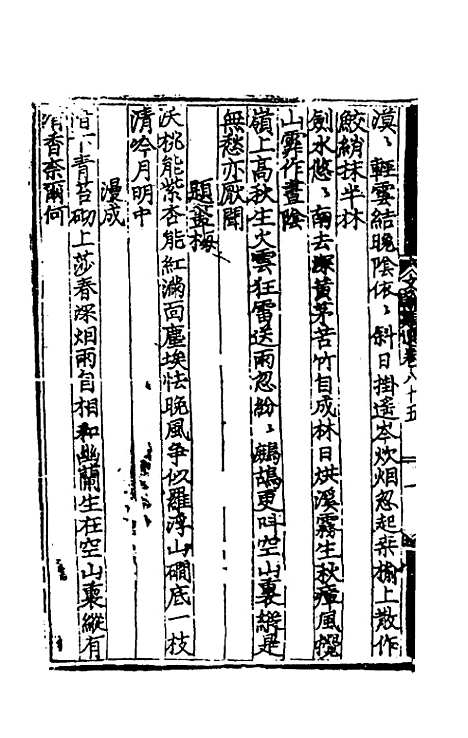 漠〻輕雲結晚陰依〻斜日掛遥岑炊烟忽起桑榆上散作
鮫綃抹半林
劍水悠〻南去深黄茅苦竹自成林日烘溪霧生秋瘴風攪
山霏作晝陰
嶺上高秋生火雲狂雷送雨忽紛〻鷓鴣更呌空山裏縱是
無愁亦厭聞
題叢梅
沃桃能紫杏能紅滿面塵埃怯晚風争似羅浮山磵底一枝
清吟月明中
漫成
堦下青苔砌上莎春深烟雨自相和幽蘭生在空山裏縱有
清香奈爾何
卷八十五